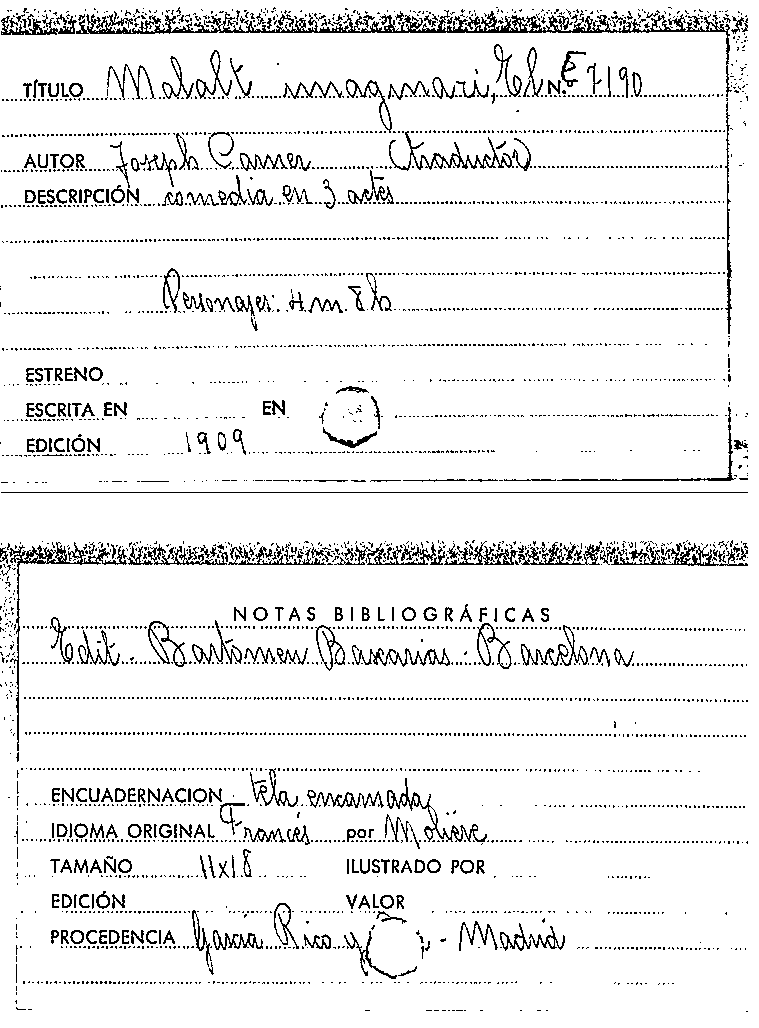 TÍTULO Malalt imaginari, El N.º E 7190
AUTOR Joseph Carner (traductor)
DESCRIPCIÓN comedia en 3 actes
Personajes: 4 m. 8 h
ESTRENO
ESCRITA EN EN
EDICIÓN 1909
NOTAS BIBLIOGRÁFICAS
Edit. Bartomeu Baxarias - Barcelona
ENCUADERNACION tela encarnada
IDIOMA ORIGINAL Francés por Molière
TAMAÑO 11x18 ILUSTRADO POR
EDICIÓN VALOR
PROCEDENCIA García Rico y - Madrid